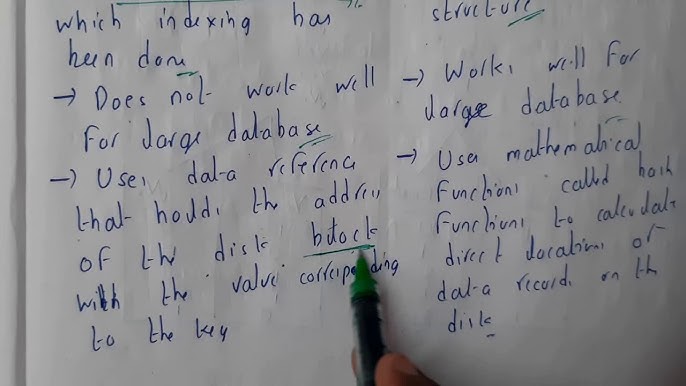 which indexing has
been done
→ Does not work well
for large database
→ Uses data reference
that holds the address
of the disk block
with the value corresponding
to the key
structure
→ Works well for
large database.
→ Uses mathematical
functions called hash
functions to calculate
direct locations of
data records on the
disk